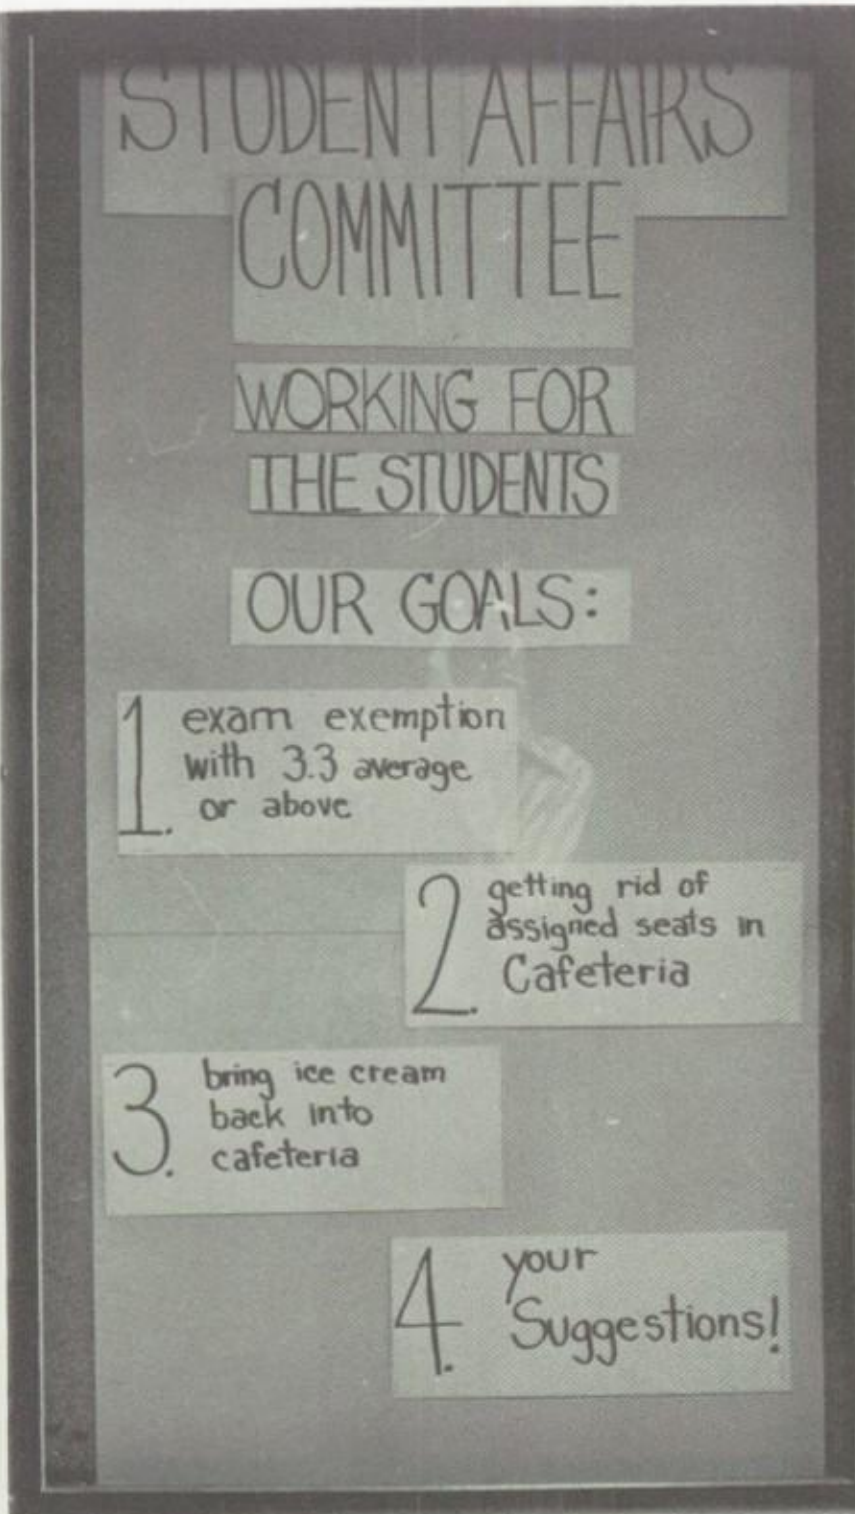 STUDENT AFFAIRS
COMMITTEE
WORKING FOR
THE STUDENTS
OUR GOALS:
1. exam exemption
with 3.3 average
or above
2. getting rid of
assigned seats in
Cafeteria
3. bring ice cream
back into
cafeteria
4. your
Suggestions!